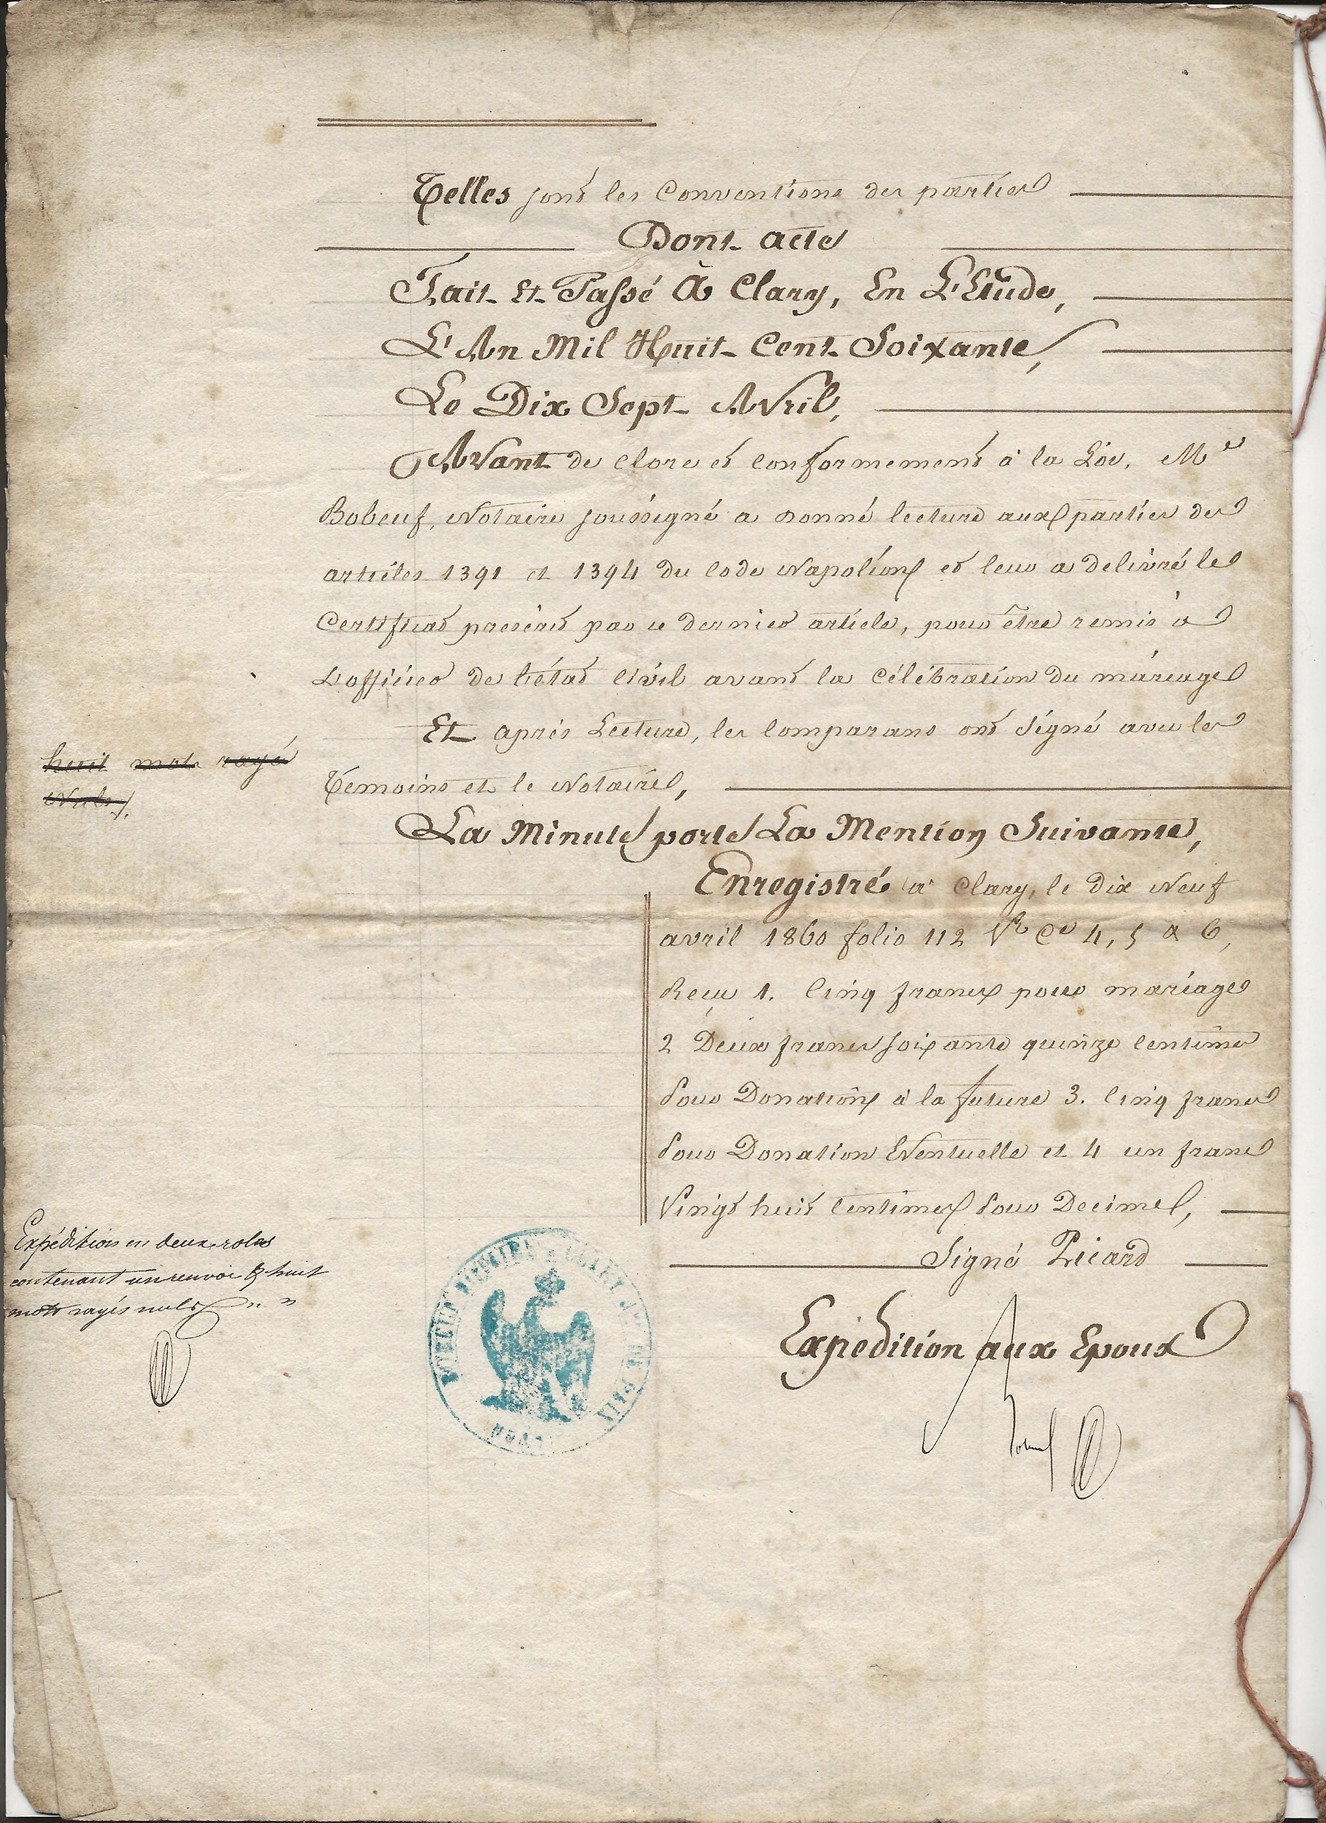 Telles sont les Conventions des parties
Dont acte
Fait Et Passé à Clary, En L'Etude,
L'An Mil Huit Cent Soixante,
Le Dix Sept Avril,
Avant de clore et conformement à la Loi, Me
Bobeuf, Notaire soussigné a donné lecture aux parties des
articles 1391 et 1394 du Code Napoléon et leur a délivré le
Certificat prescrit par ce dernier article, pour être remis à
L'officier de l'état civil avant la célébration du mariage
Et après Lecture, les comparans ont signé avec les
Témoins et le Notaire,
huit mots rayés
Nuls
La Minute porte La Mention Suivante,
Enregistré à Clary, le dix Neuf
avril 1860 folio 112 Vo Ces 4, 5 & 6,
Reçu 1. Cinq francs pour mariage
2 Deux francs soixante quinze centimes
Pour Donation à la future 3. Cinq francs
Pour Donation Eventuelle et 4 un franc
Vingt huit centimes Pour Decimes,
Signé Picard
Expédition en deux roles
contenant un renvoi & huit
mots rayés nuls
Expédition aux Epoux